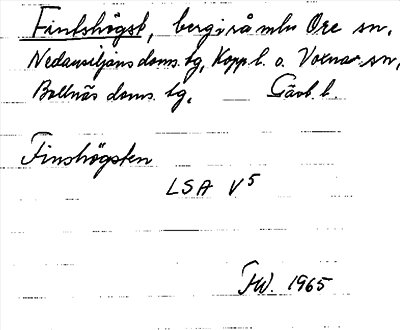 Fintshögst, berg, rå mln Ore sn,
Nedansiljans doms. tg, Kopp. l. o. Voxna sn,
Bollnäs doms. tg, Gävl. l.
Finshögsten
LSA V5
FW. 1965